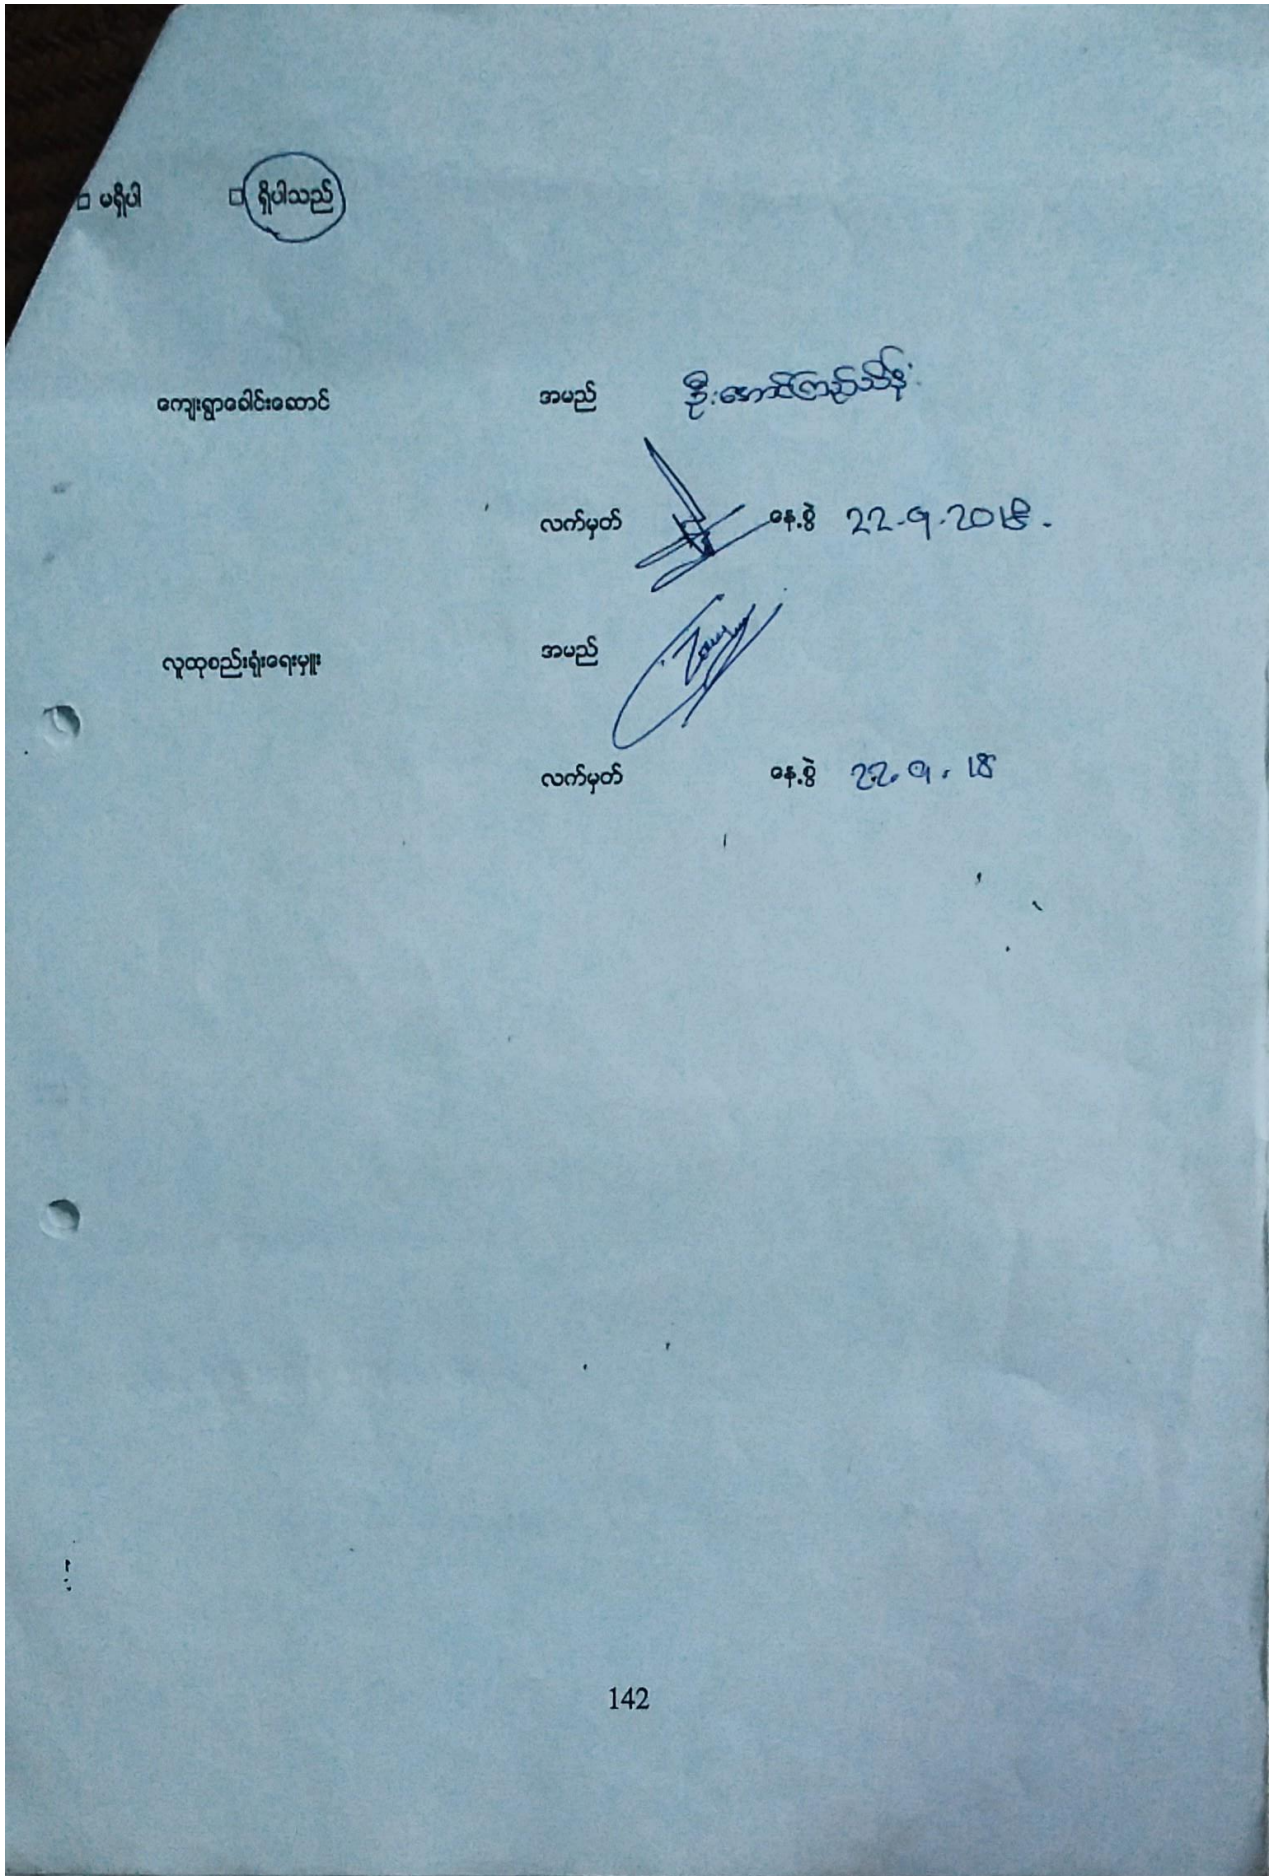 □ မရှိပါ □ ရှိပါသည်
ကျေးရွာခေါင်းဆောင် အမည် ဦးအောင်ကြည်သိန်း
လက်မှတ် နေ့စွဲ 22.9.2018.
လူထုစည်းရုံးရေးမှူး အမည်
လက်မှတ် နေ့စွဲ 22.9.18
142